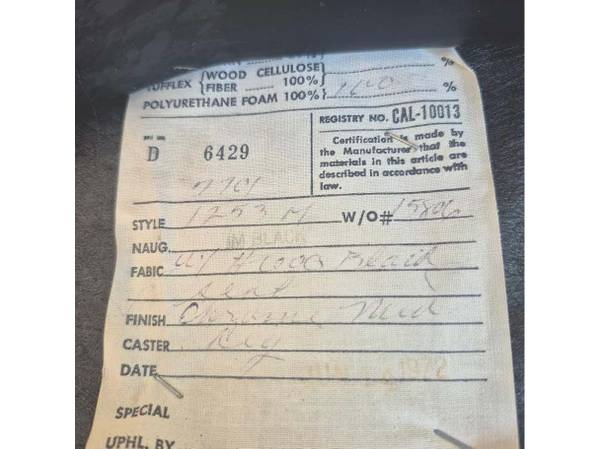 %
TUFFLEX {WOOD CELLULOSE}
{FIBER 100%}
POLYURETHANE FOAM 100%} 100 %
REGISTRY NO. CAL-10013
Certification is made by
the Manufacturer that the
materials in this article are
described in accordance with
law.
D 6429
STYLE 1253 M W/O# 15806
IM BLACK
NAUG.
FABIC Black
seat
FINISH Chrome Med
CASTER Reg
DATE JUN 1972
SPECIAL
UPHL. BY